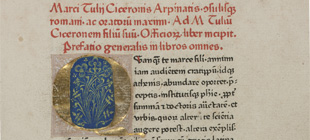 Marci Tulij Ciceronis Arpinatis, cōsulisqꝫ
romani, ac oratorū maximi, Ad M. Tuliū
Ciceronem filiū suū, Officiorū liber incipit.
Prefatio generalis in libros omnes.
Quanqꝫ te marce fili, annum
iam audientem cratippū, idqꝫ
athenis, abundare oportet, p̄
ceptis, institutisqꝫ phie, ꝓpter
summā & doctoris auctoritatē, &
urbis, quoꝝ alter, te scientia
augere potest, altera exemplis